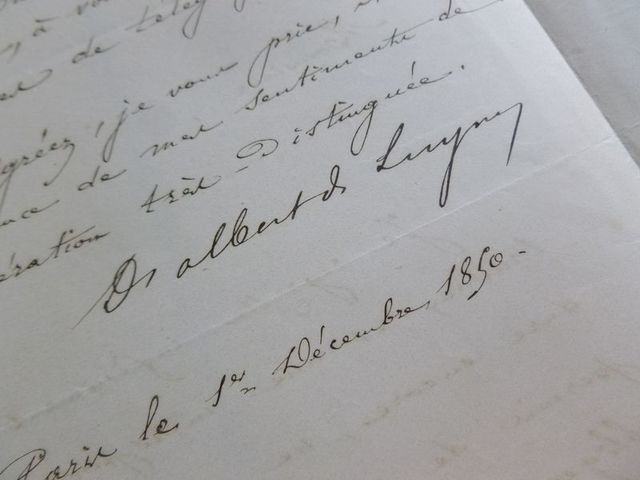 , à vous
de télég
Agréez, je vous prie,
de mes sentiments de
ération très Distinguée.
Dr albert de Luynes
Paris le 1er Décembre 1850.